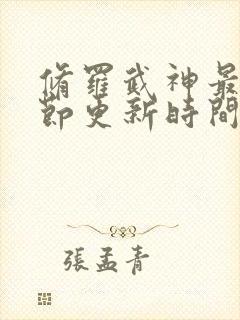 脩羅武神最
節更新時間
張孟青